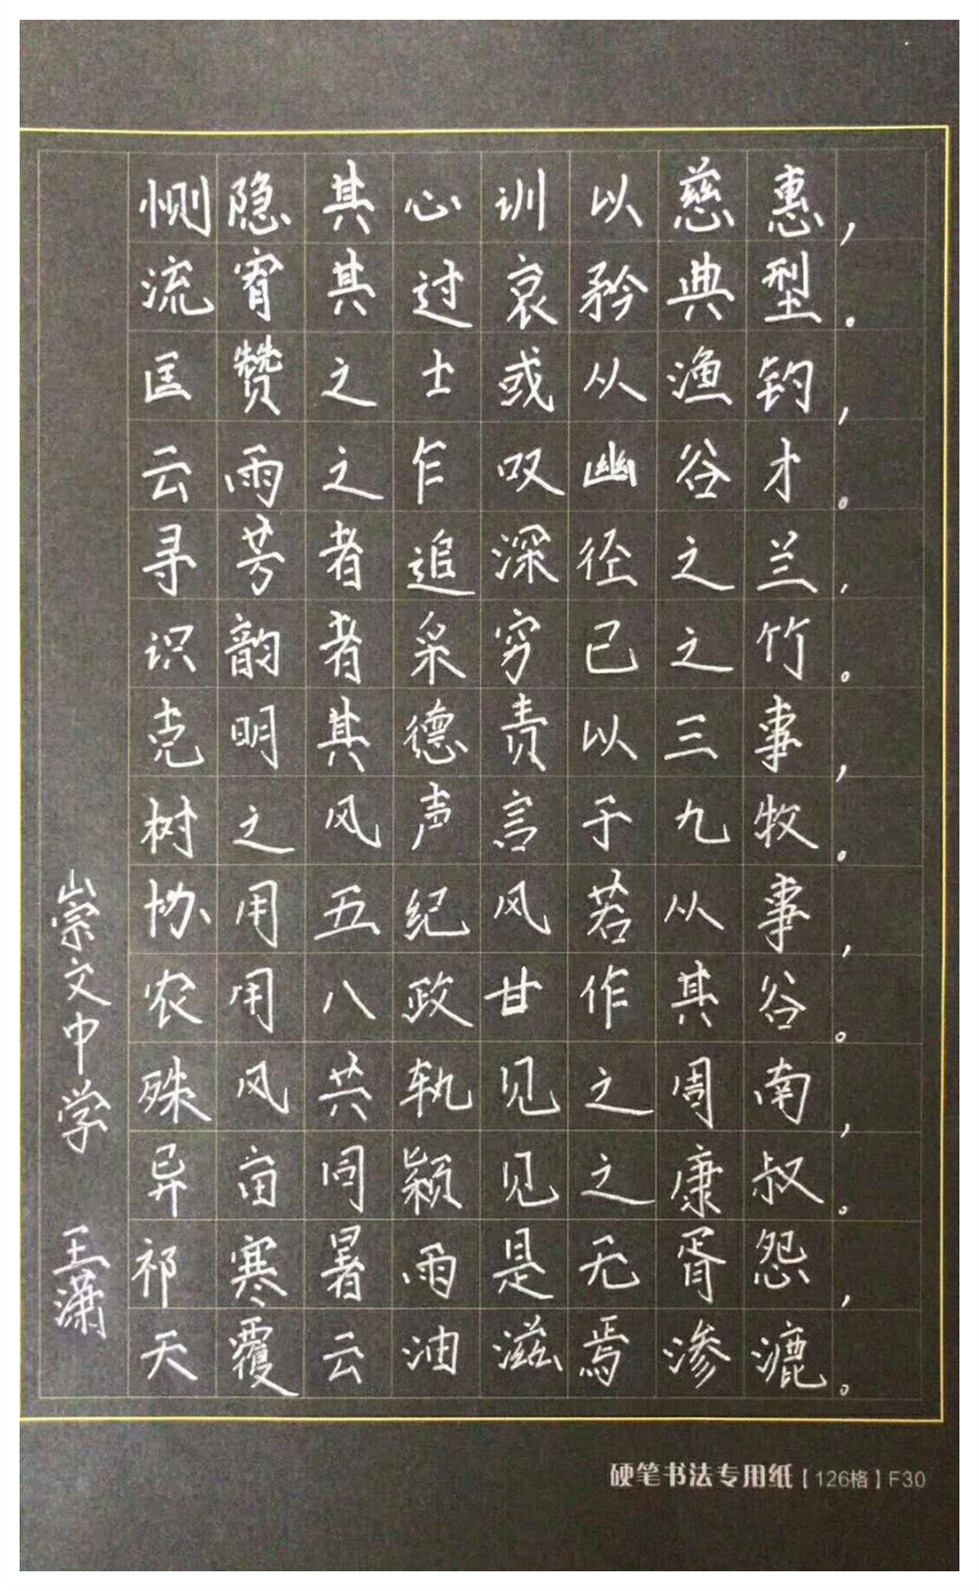 恻隐其心训以慈惠，
流宥其过哀矜典型。
匡赞之士或从渔钓，
云雨之乍叹幽谷才。
寻芳者追深径之兰，
识韵者采穷已之竹。
克明其德责以三事，
树之风声言于九牧。
协用五纪风若从事，
农用八政甘作其谷。
殊风共轨见之周南，
异亩同颖见之康叔。
祁寒暑雨是无胥怨，
天覆云油滋焉渗漉。
崇文中学 王潇
硬笔书法专用纸【126格】F30